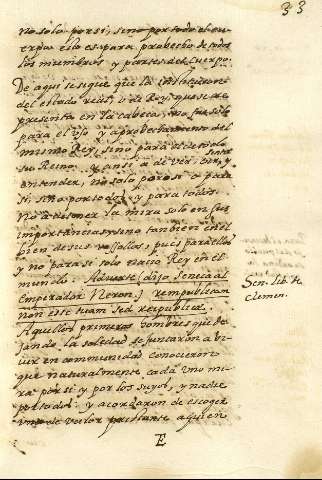 33
no solo por si, sino por todo el cu-
erpo: ello es para probecho de todos
los miembros y partes del cuerpo.
De aqui se sigue que la institucion
del estado real, o de Rey, que se re-
presenta en la cabeza, no fue solo
para el uso y aprobechamiento del
mismo Rey, sino para el de todo
su Reino. y ansi a de ver, oir, y
entender, no solo por si o para
si, sino por todos y para todos.
No a de poner la mira solo en sus
importancias sino tambien en el
bien de sus vasallos, pues para ellos
y no para si solo nacio Rey en el
mundo. Adverte (dijo Seneca al
Emperador Neron) rempublicam
non esse tuam sed reipublicæ.
Aquellos primeros hombres que de-
jando la soledad se juntaron a vi-
vir en communidad conocieron
que naturalmente cada uno mi-
ra por si y por los suyos, y nadie
por todos: y acordaron de escoger
uno de valor prestante a quien
Sen. lib. de
clemen.
E